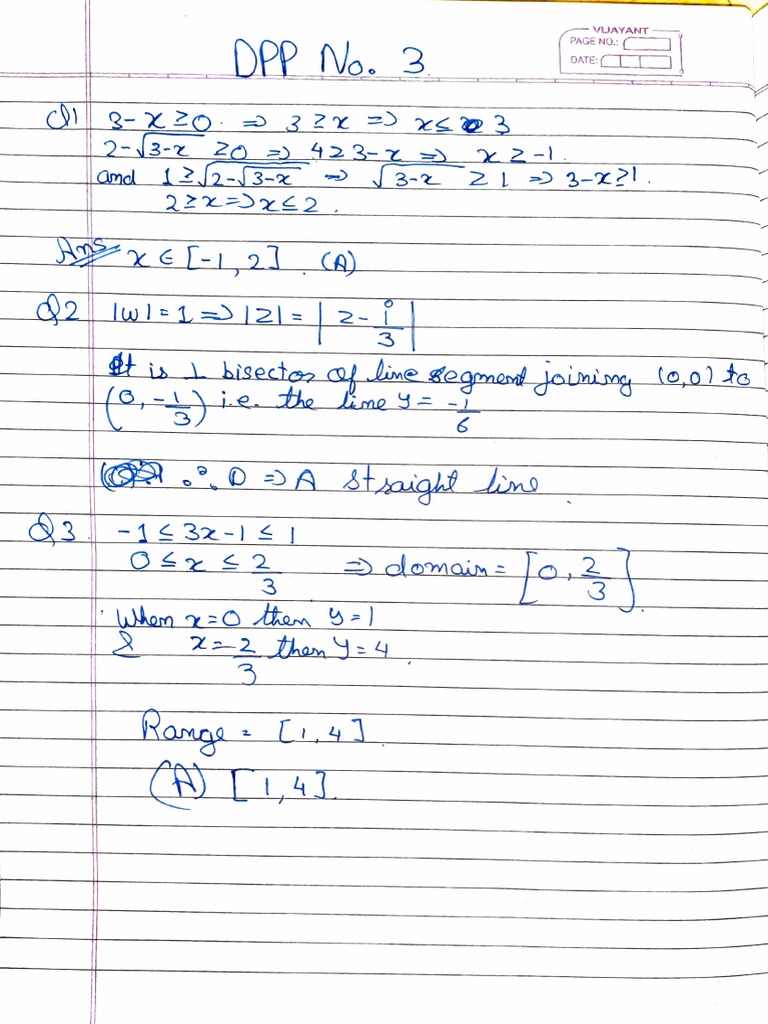 VIJAYANT
PAGE NO.:
DATE:
DPP No. 3
Q1 3-x≥0. ⇒ 3≥x ⇒ x≤ 3
2-√(3-x) ≥0 ⇒ 4≥3-x ⇒ x≥-1.
and 1≥√(2-√(3-x)) ⇒ √(3-x) ≥1 ⇒ 3-x≥1.
2≥x ⇒ x≤2.
Ans x ∈ [-1, 2] (A)
Q2 |w| = 1 ⇒ |z| = |z - i/3|
It is ⊥ bisector of line segment joining (0,0) to
(0, -1/3) i.e. the line y = -1/6
∴ D ⇒ A straight line
Q3. -1 ≤ 3x-1 ≤ 1
0 ≤ x ≤ 2/3 ⇒ domain = [0, 2/3].
When x=0 then y=1
& x=2/3 then y=4.
Range = [1, 4]
(A) [1, 4].